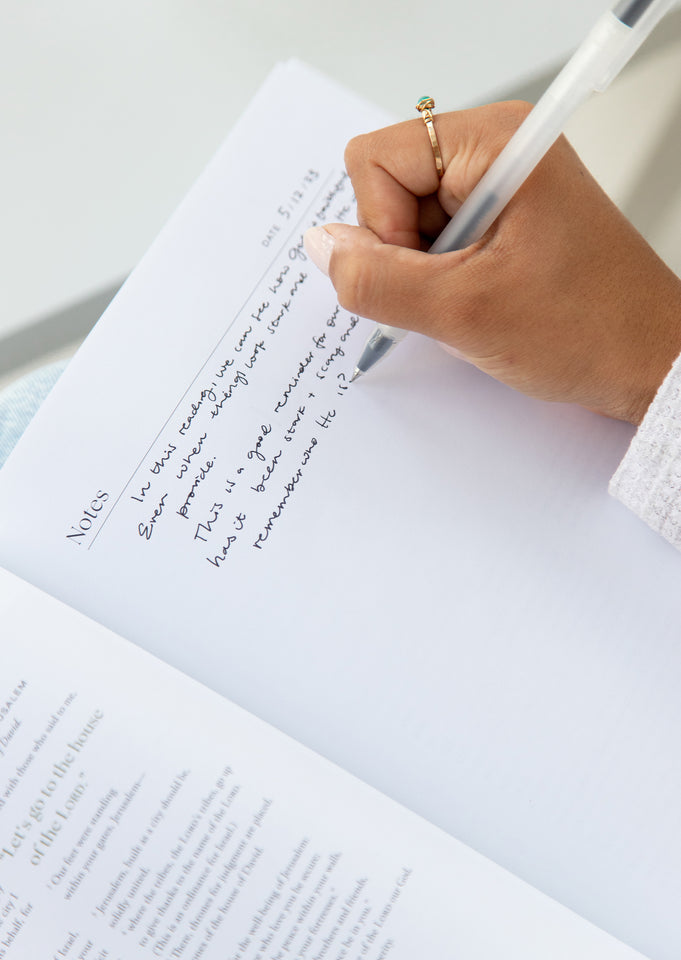 Notes
DATE 5/12/23
In this reading, we can see how
Even when things look stark and
provide.
This is a good reminder for our
has it been stark + scary and
remember who He is?
with those who said to me,
"Let's go to the house
of the LORD."
Our feet were standing
within your gates, Jerusalem—
Jerusalem, built as a city should be,
solidly united,
where the tribes, the LORD's tribes, go up
to give thanks to the name of the LORD.
(This is an ordinance for Israel.)
There, thrones for judgment are placed,
of the house of David.
the well-being of Jerusalem:
who love you be secure;
peace within your walls,
your fortresses."
brothers and friends,
be in you."
of the LORD our God,